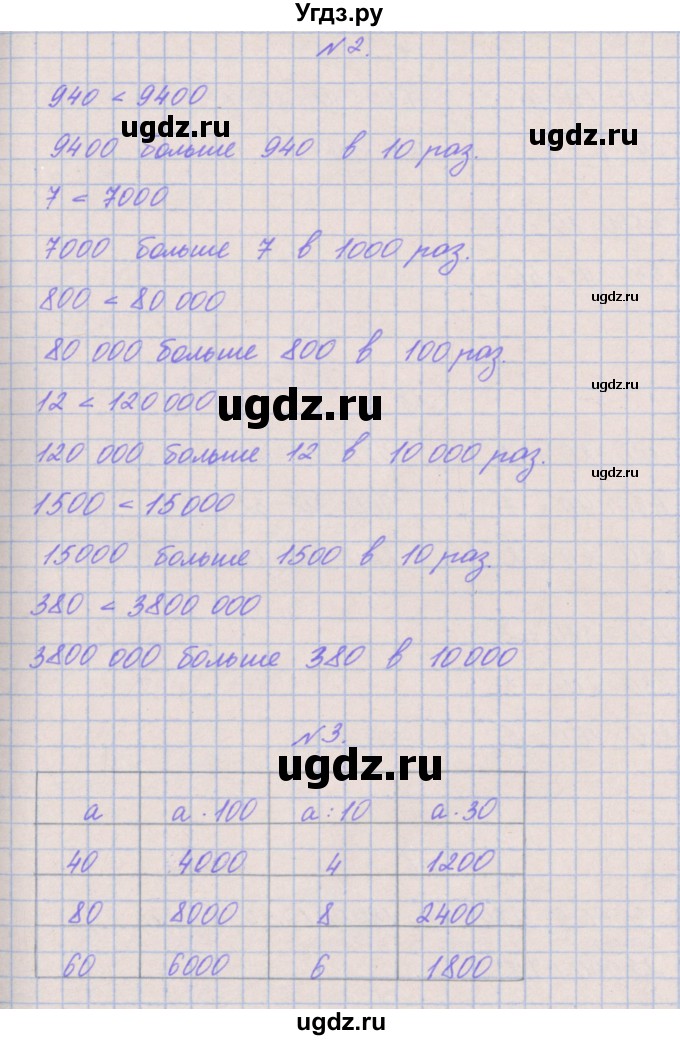 Угдз.ру
№2.
940 < 9400
ugdz.ru
ugdz.ru
9400 больше 940 в 10 раз.
7 < 7000
7000 больше 7 в 1000 раз.
800 < 80 000
ugdz.ru
80 000 больше 800 в 100 раз.
ugdz.ru
12 < 120 000
ugdz.ru
120 000 больше 12 в 10 000 раз.
ugdz.ru
1500 < 15 000
15000 больше 1500 в 10 раз.
380 < 3800 000
3800 000 больше 380 в 10 000
№3.
ugdz.ru
а а · 100 а : 10 а · 30
40 4000 4 1200
80 8000 8 2400
60 6000 6 1800
ugdz.ru